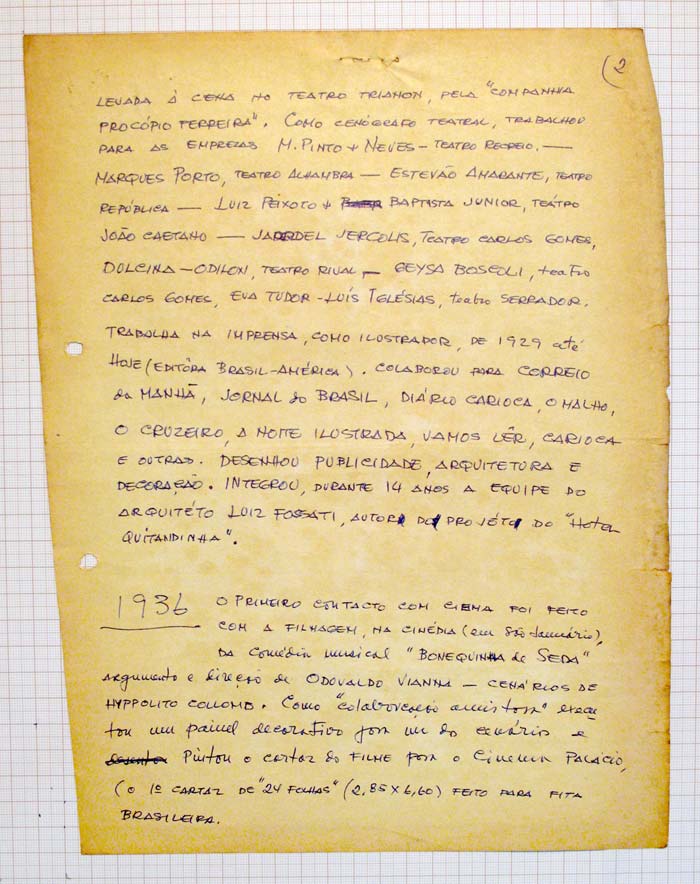 (2
LEVADA À CENA NO TEATRO TRIANON, PELA "COMPANHIA
PROCÓPIO FERREIRA". COMO CENÓGRAFO TEATRAL, TRABALHOU
PARA AS EMPREZAS M. PINTO + NEVES - TEATRO RECREIO. —
MARQUES PORTO, TEATRO ALHAMBRA — ESTEVÃO AMARANTE, TEATRO
REPÚBLICA — LUIZ PEIXOTO + BAPTISTA JUNIOR, TEATRO
JOÃO CAETANO — JARDEL JERCOLIS, TEATRO CARLOS GOMES,
DULCINA-ODILON, TEATRO RIVAL, — GEYSA BOSCOLI, teatro
CARLOS GOMES, EVA TUDOR - LUÍS IGLÉSIAS, teatro SERRADOR.
TRABALHA NA IMPRENSA, COMO ILUSTRADOR, DE 1929 até
HOJE (EDITÔRA BRASIL-AMÉRICA). COLABOROU PARA CORREIO
da MANHÃ, JORNAL do BRASIL, DIÁRIO CARIOCA, O MALHO,
O CRUZEIRO, A NOITE ILUSTRADA, VAMOS LÊR, CARIOCA
E OUTRAS. DESENHOU PUBLICIDADE, ARQUITETURA E
DECORAÇÃO. INTEGROU, DURANTE 14 ANOS A EQUIPE DO
ARQUITÉTO LUIZ FOSSATI, AUTOR DO PROJÉTO DO "HOTEL
QUITANDINHA".
1936 O PRIMEIRO CONTACTO COM CINEMA FOI FEITO
COM A FILMAGEM, NA CINÉDIA (em São Januário),
DA comédia musical "BONEQUINHA de SEDA"
Argumento e direção de ODUVALDO VIANNA — CENÁRIOS DE
HYPPOLITO COLLOMB. Como "colaboração amistosa" execu
tou um painel decorativo para um do cenários e
Pintou o cartaz do FILME para o Cinema PALÁCIO,
(O 1º CARTAZ DE "24 FOLHAS" (2,85 X 6,60) FEITO PARA FITA
BRASILEIRA.